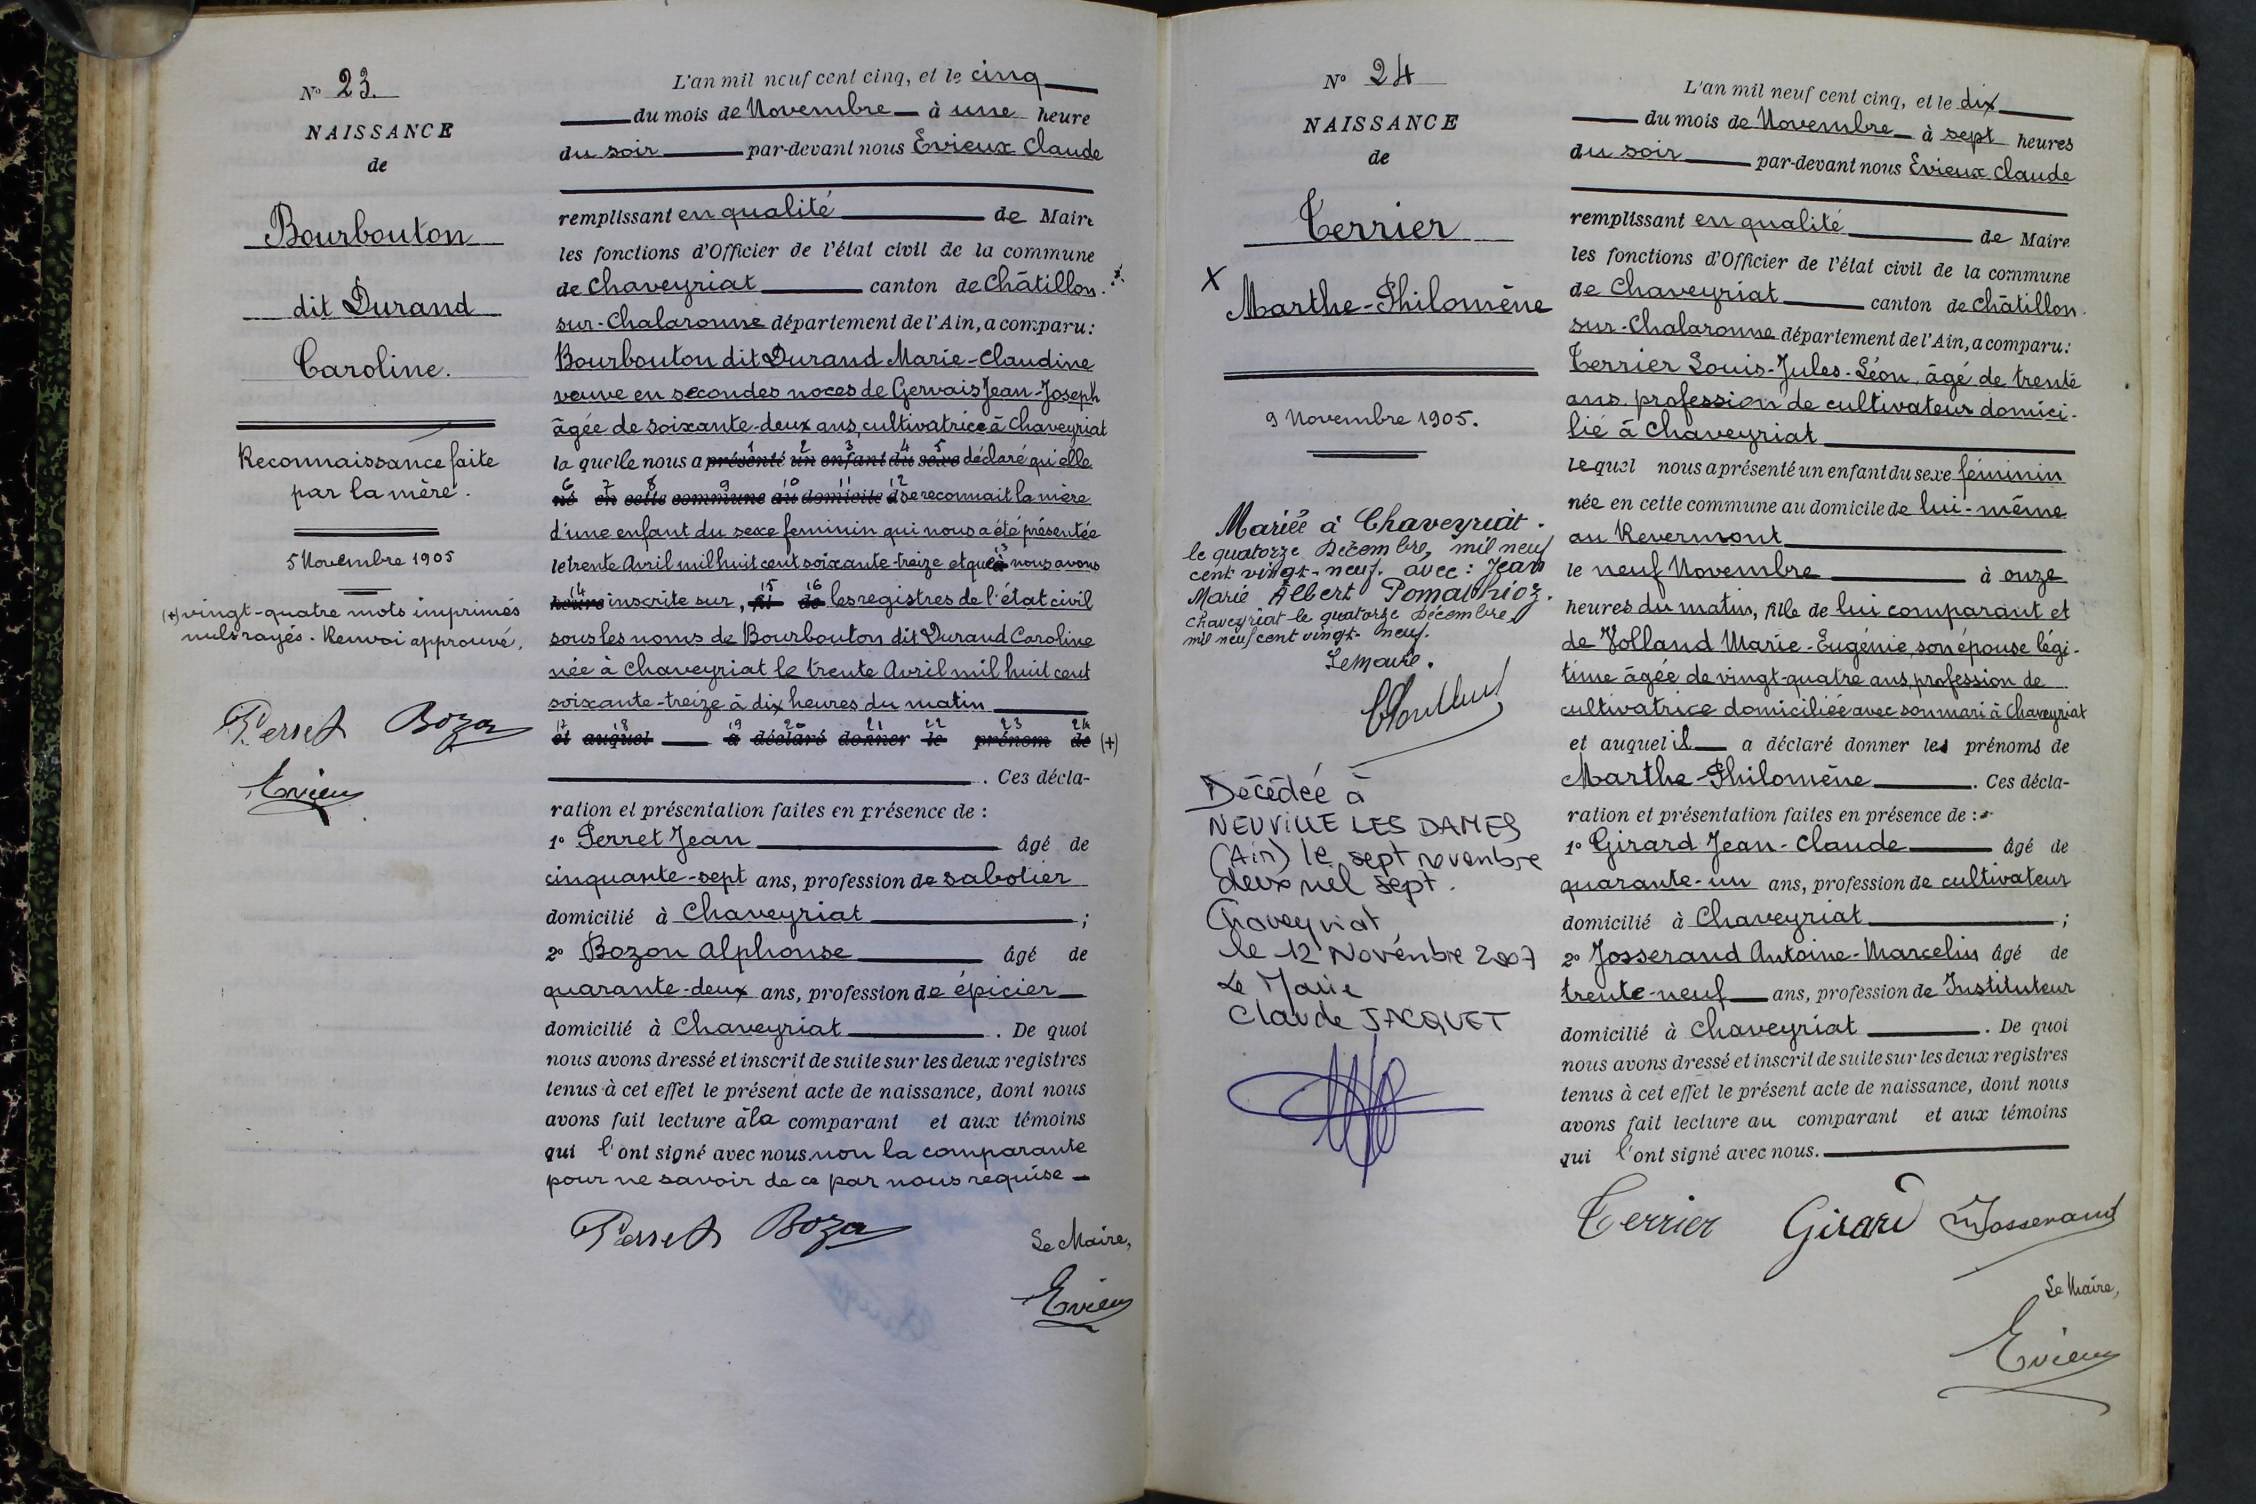 N° 23.
NAISSANCE
de
Bourbouton
dit Durand
Caroline.
Reconnaissance faite
par la mère.
5 Novembre 1905
(+) vingt-quatre mots imprimés
nuls rayés. Renvoi approuvé.
Perret Bozon
Evieux
L'an mil neuf cent cinq, et le cinq
du mois de Novembre à une heure
du soir par-devant nous Evieux Claude
remplissant en qualité de Maire
les fonctions d'Officier de l'état civil de la commune
de Chaveyriat canton de Châtillon-
sur-Chalaronne département de l'Ain, a comparu:
Bourbouton dit Durand Marie-Claudine
veuve en secondes noces de Gervais Jean-Joseph
âgée de soixante-deux ans, cultivatrice à Chaveyriat
1 2 3 4 5
la quelle nous a présenté un enfant du sexe déclaré qu'elle
6 7 8 9 10 11 12
né en cette commune au domicile de se reconnait la mère
d'une enfant du sexe feminin qui nous a été présentée
13
le trente Avril mil huit cent soixante-treize et que à nous avons
14 15 16
heures inscrite sur, fil de les registres de l'état civil
sous les noms de Bourbouton dit Durand Caroline
née à Chaveyriat le trente Avril mil huit cent
soixante-treize à dix heures du matin
17 18 19 20 21 22 23 24
et auquel a déclaré donner le prénom de (+)
. Ces décla-
ration et présentation faites en présence de :
1° Perret Jean âgé de
cinquante-sept ans, profession de sabotier
domicilié à Chaveyriat ;
2° Bozon Alphonse âgé de
quarante-deux ans, profession de épicier
domicilié à Chaveyriat . De quoi
nous avons dressé et inscrit de suite sur les deux registres
tenus à cet effet le présent acte de naissance, dont nous
avons fait lecture à la comparant et aux témoins
qui l'ont signé avec nous. non la comparante
pour ne savoir de ce par nous requise
Perret Bozon
Le Maire,
Evieux
N° 24
NAISSANCE
de
Terrier
X
Marthe-Philomène
9 Novembre 1905.
Mariée à Chaveyriat.
le quatorze Décembre, mil neuf
cent vingt-neuf. avec : Jean
Marie Albert Pomathioz.
Chaveyriat le quatorze Décembre
mil neuf cent vingt-neuf.
Le maire.
Décédée à
NEUVILLE LES DAMES
(Ain) le sept novembre
deux mil sept.
Chaveyriat
le 12 Novembre 2007
Le Maire
Claude JACQUET
L'an mil neuf cent cinq, et le dix
du mois de Novembre à sept heures
du soir par-devant nous Evieux Claude
remplissant en qualité de Maire
les fonctions d'Officier de l'état civil de la commune
de Chaveyriat canton de Châtillon-
sur-Chalaronne département de l'Ain, a comparu:
Terrier Louis-Jules-Léon, âgé de trente
ans profession de cultivateur domici-
lié à Chaveyriat
lequel nous a présenté un enfant du sexe féminin
née en cette commune au domicile de lui-même
au Revermont
le neuf Novembre à onze
heures du matin, fille de lui comparant et
de Volland Marie-Eugénie, son épouse légi-
time âgée de vingt-quatre ans, profession de
cultivatrice domiciliée avec son mari à Chaveyriat
et auquel il a déclaré donner les prénoms de
Marthe-Philomène . Ces décla-
ration et présentation faites en présence de :
1° Girard Jean-Claude âgé de
quarante-un ans, profession de cultivateur
domicilié à Chaveyriat ;
2° Josserand Antoine-Marcelin âgé de
trente-neuf ans, profession de Instituteur
domicilié à Chaveyriat . De quoi
nous avons dressé et inscrit de suite sur les deux registres
tenus à cet effet le présent acte de naissance, dont nous
avons fait lecture au comparant et aux témoins
qui l'ont signé avec nous.
Terrier Girard Josserand
Le Maire,
Evieux